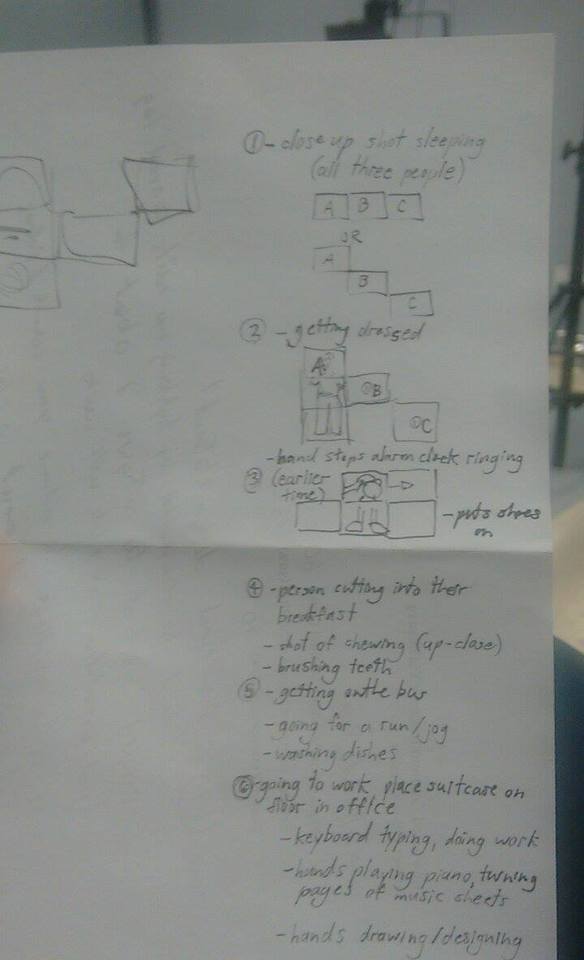 ① - close up shot sleeping
(all three people)
A B C
OR
A
B
C
② - getting dressed
A
B
C
- hand stops alarm clock ringing
③ (earlier
time)
- puts shoes
on
④ - person cutting into their
breakfast
- shot of chewing (up-close)
- brushing teeth
⑤ - getting onthe bus
- going for a run/jog
- washing dishes
⑥ - going to work place suitcase on
floor in office
- keyboard typing, doing work
- hands playing piano, turning
pages of music sheets
- hands drawing/designing